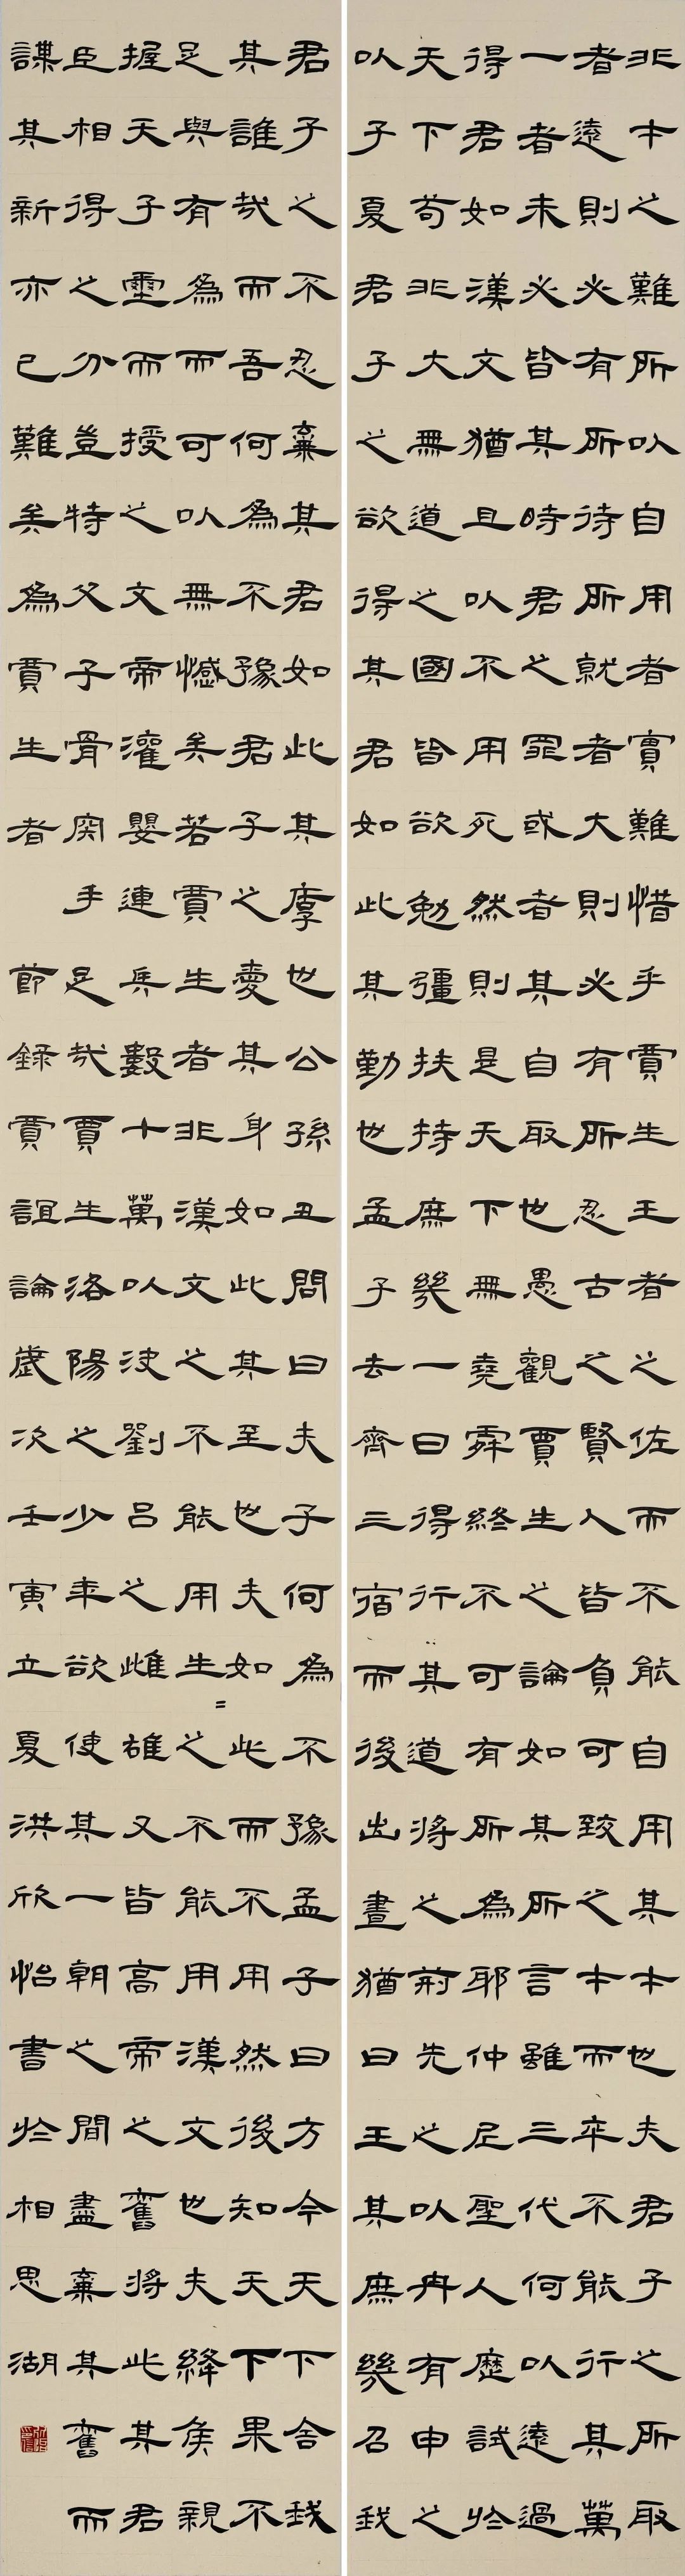 非才之難所以自用者實難惜乎賈生王者之佐而不能自用其才也夫君子之所取
者遠則必有所待所就者大則必有所忍古之賢人皆負可致之才而卒不能行其萬
一者未必皆其時君之罪或者其自取也愚觀賈生之論如其所言雖三代何以遠過
得君如漢文猶且以不用死然則是天下無堯舜終不可有所為耶仲尼聖人歷試於
天下苟非大無道之國皆欲勉彊扶持庶幾一日得行其道將之荊先之以冉有申之
以子夏君子之欲得其君如此其勤也孟子去齊三宿而後出晝猶曰王其庶幾召我
君子之不忍棄其君如此其厚也公孫丑問曰夫子何為不豫孟子曰方今天下舍我
其誰哉而吾何為不豫君子之愛其身如此其至也夫如此而不用然後知天下果不
足與有為而可以無憾矣若賈生者非漢文之不能用生=之不能用漢文也夫絳侯親
握天子璽而授之文帝灌嬰連兵數十萬以決劉呂之雌雄又皆高帝之舊將此其君
臣相得之分豈特父子骨肉手足哉賈生洛陽之少年欲使其一朝之間盡棄其舊而
謀其新亦已難矣為賈生者 節錄賈誼論歲次壬寅立夏洪欣怡書於相思湖